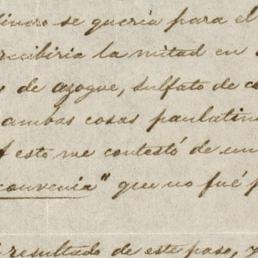 dinero se queria para el
recibiria la mitad en
s de azogue, sulfato de co
ambas cosas paulatin
A esto me contestó de un
convenia" que no fué p
resultado de este paso, y